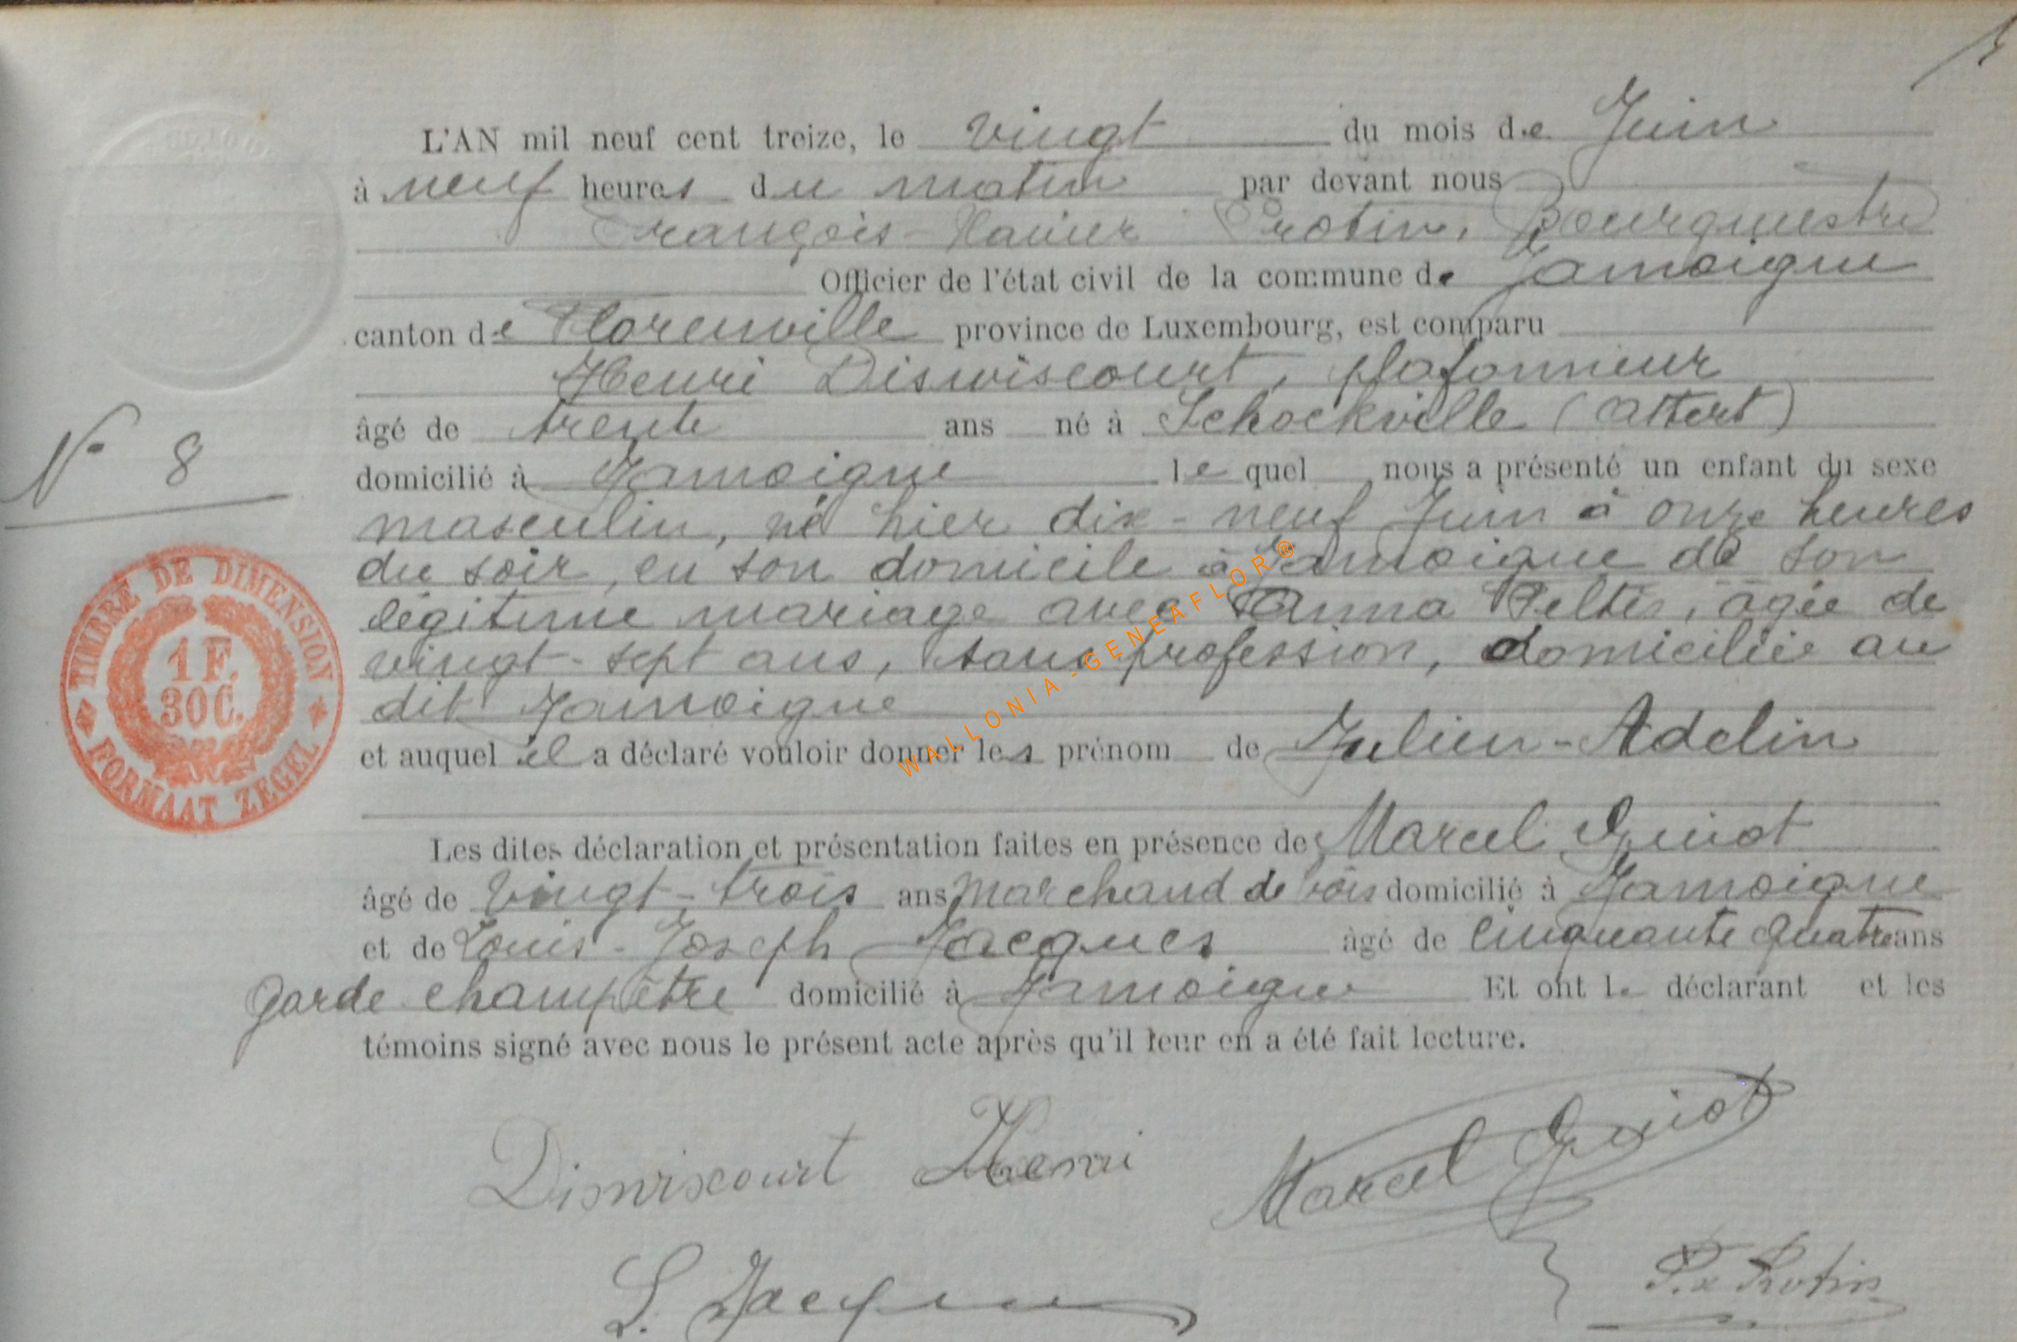 L'AN mil neuf cent treize, le vingt du mois de Juin
à neuf heures du matin par devant nous
François-Xavier Protin, Bourgmestre
Officier de l'état civil de la commune de Jamoigne
canton de Florenville province de Luxembourg, est comparu
Henri Diswiscourt, plafonneur
âgé de trente ans né à Schockville (Attert)
N° 8
domicilié à Jamoigne lequel nous a présenté un enfant du sexe
masculin, né hier dix-neuf Juin à onze heures
du soir, en son domicile à Jamoigne de son
légitime mariage avec Anna Peltier, âgée de
vingt-sept ans, sans profession, domiciliée au
dit Jamoigne
et auquel il a déclaré vouloir donner les prénom de Julien-Adelin
TIMBRE DE DIMENSION
1 F.
30C.
FORMAAT ZEGEL
WALLONIA-GENEAFLOR®
Les dites déclaration et présentation faites en présence de Marcel Guiot
âgé de vingt-trois ans Marchand de bois domicilié à Jamoigne
et de Louis-Joseph Jacques âgé de cinquante quatre ans
Garde champêtre domicilié à Jamoigne Et ont le déclarant et les
témoins signé avec nous le présent acte après qu'il leur en a été fait lecture.
Diswiscourt Henri
Marcel Guiot
L. Jacques
F.x Protin